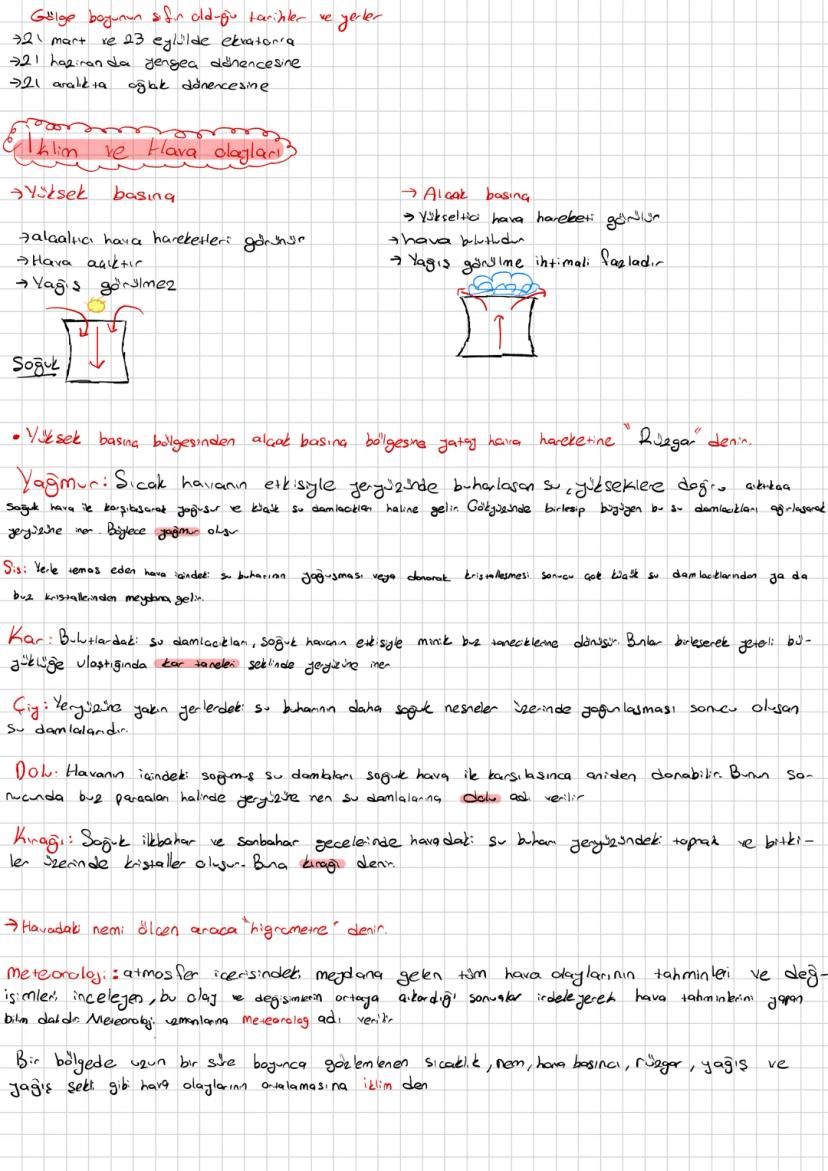 Gölge boyunun sıfır olduğu tarihler ve yerler
→21 mart ve 23 eylülde ekvatora
→21 haziranda yengeç dönencesine
→21 aralıkta oğlak dönencesine
İklim ve Hava olayları
→Yüksek basınç
→alçaltıcı hava hareketleri görünür
→Hava açıktır
→Yağış görülmez
Soğuk
→Alçak basınç
→Yükseltici hava hareketi görülür
→hava bulutludur
→Yağış görülme ihtimali fazladır
• Yüksek basınç bölgesinden alçak basınç bölgesine yatay hava hareketine "Rüzgar" denir.
Yağmur: Sıcak havanın etkisiyle yeryüzünde buharlaşan su, yükseklere doğru çıktıkça
soğuk hava ile karşılaşarak yoğuşur ve küçük su damlacıkları haline gelir. Gökyüzünde birleşip büyüyen bu su damlacıkları ağırlaşarak
yeryüzüne iner. Böylece yağmur oluşur
Sis: Yerle temas eden hava içindeki su buharının yoğuşması veya donarak kristalleşmesi sonucu çok küçük su damlacıklarından ya da
buz kristallerinden meydana gelir.
Kar: Bulutlardaki su damlacıkları, soğuk havanın etkisiyle minik buz taneciklerine dönüşür. Bunlar birleşerek yeterli bü-
yüklüğe ulaştığında kar taneleri şeklinde yeryüzüne iner
Çiy: Yeryüzüne yakın yerlerdeki su buharının daha soğuk nesneler üzerinde yoğunlaşması sonucu oluşan
su damlalarıdır.
Dolu: Havanın içindeki soğumuş su damlaları soğuk hava ile karşılaşınca aniden donabilir. Bunun so-
nucunda buz parçaları halinde yeryüzüne inen su damlalarına dolu adı verilir
Kırağı: Soğuk ilkbahar ve sonbahar gecelerinde havadaki su buharı yeryüzündeki toprak ve bitki-
ler üzerinde kristaller oluşur. Buna kırağı denir.
→Havadaki nemi ölçen araca "higrometre" denir.
Meteoroloji: atmosfer içerisindeki meydana gelen tüm hava olaylarının tahminleri ve değ-
işimleri inceleyen, bu olay ve değişimlerin ortaya çıkardığı sonuçlar irdeleyerek hava tahminlerini yapan
bilim dalıdır. Meteoroloji uzmanlarına meteorolog adı verilir
Bir bölgede uzun bir süre boyunca gözlemlenen sıcaklık, nem, hava basıncı, rüzgar, yağış ve
yağış şekli gibi hava olaylarının ortalamasına iklim den